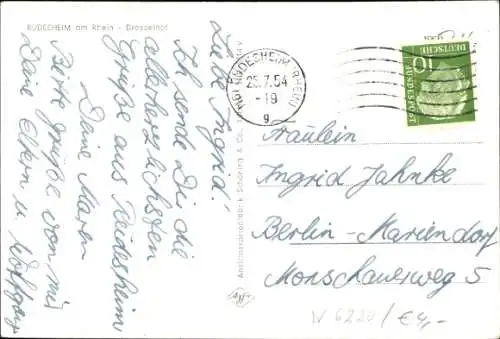 RÜDESHEIM am Rhein - Drosselhof
Liebe Ingrid!
Ich sende Dir die
allerherzlichsten
Grüße aus Rüdesheim
Deine Maren
Beste Grüße von mir
Deine Eltern u. Wolfgang
Ansichtskartenfabrik Schöning & Co.
(16) RÜDESHEIM (RHEIN)
25.7.54
-19
g
DEUTSCHE
BUNDESPOST
10
Fräulein
Ingrid Jahnke
Berlin-Mariendorf
Monschauerweg 5
W 6220 / € 4,-